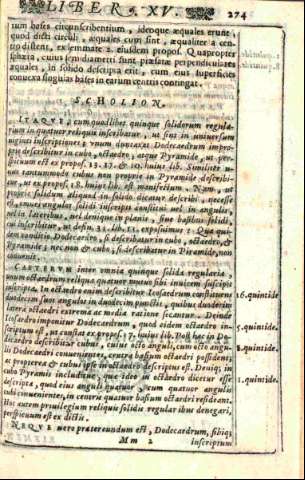 LIBER XV. 274
tum bases circunscribentium, ideoque æquales erunt;
quod dicti circuli, æquales cum sint, æqualiter a cen-
tro distent, ex lemmate 2. eiusdem propos. Quapropter
sphæra, cuius semidiametri sunt præfatæ perpendiculares
æquales, in solido descripta erit, cum eius superficies
conuexa singulas bases in earum centris contingat.
SCHOLION.
ITAQVE, cum quodlibet quinque solidorum regula-
rium in quatuor reliquis inscribatur, ut sint in uniuersum
uiginti inscriptiones; unum duntaxat Dodecaedrum impro-
prie describitur in cubo, octaedro, atque Pyramide, ut per-
spicuum est ex propos. 13. 17. & 19. huius lib. Similiter
tantummodo cubus non proprie in Pyramide describi-
tur, ut ex propos. 18. huius lib. est manifestum. Nam, ut
proprie solidum aliquod in solido dicatur describi, necesse
est, omnes angulos solidi inscripti constitui uel in angulis,
uel in lateribus, uel denique in planis, siue basibus solidi,
cui inscribitur, ut defin. 31. lib. 11. exposuimus? Qua qui-
dem conditio Dodecaedro, si describatur in cubo, octaedro, &
Pyramide; nec non & cubo, si describatur in Piramide, non
conuenit.
CAETERVM inter omnia quinque solida regularia,
unum octaedrum reliqua quatuor mutuo sibi inuicem suscipit
inscripta. In octaedro enim describitur Icosaedrum constituens
duodecim suos angulos in duodecim punctis, quibus duodecim
latera octaedri extrema ac media ratione secantur. Deinde
Icosaedro imponitur Dodecaedrum, quod eidem octaedro in-
scriptum est, ut constat ex propos. 17. huius lib. Post hæc in Do-
decaedro describitur cubus, cuius octo anguli, cum octo angu-
lis Dodecaedri conuenientes, centra basium octaedri possident;
ac propterea & cubus ipse in octaedro descriptus est. Deniq; in
cubo Pyramis includitur, quæ ideo in octaedro dicetur esse
descripta, quod eius anguli quatuor, cum quatuor angulis
cubi conuenientes, in centris quatuor basium octaedri resideant.
Hoc autem priuilegium reliquis solidis regularibus denegari,
perspicuum est ex dictis.
NEQVE uero prætereundum est, Dodecaedrum, sibiq;
Mm 2 inscriptum
16. quintide.
5. quintide.
8. quintide.
1. quintide.